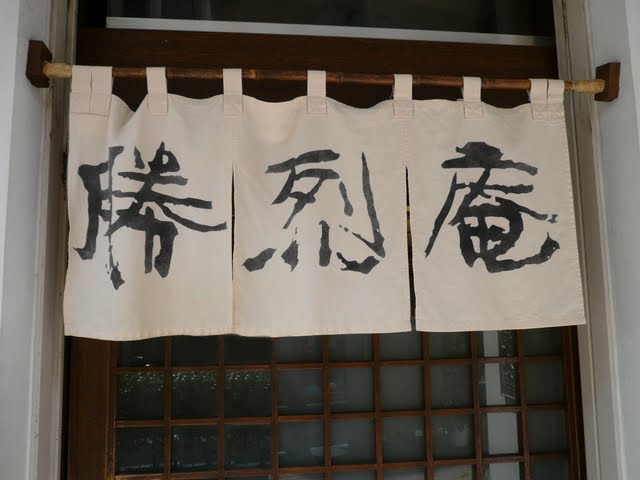 勝烈庵